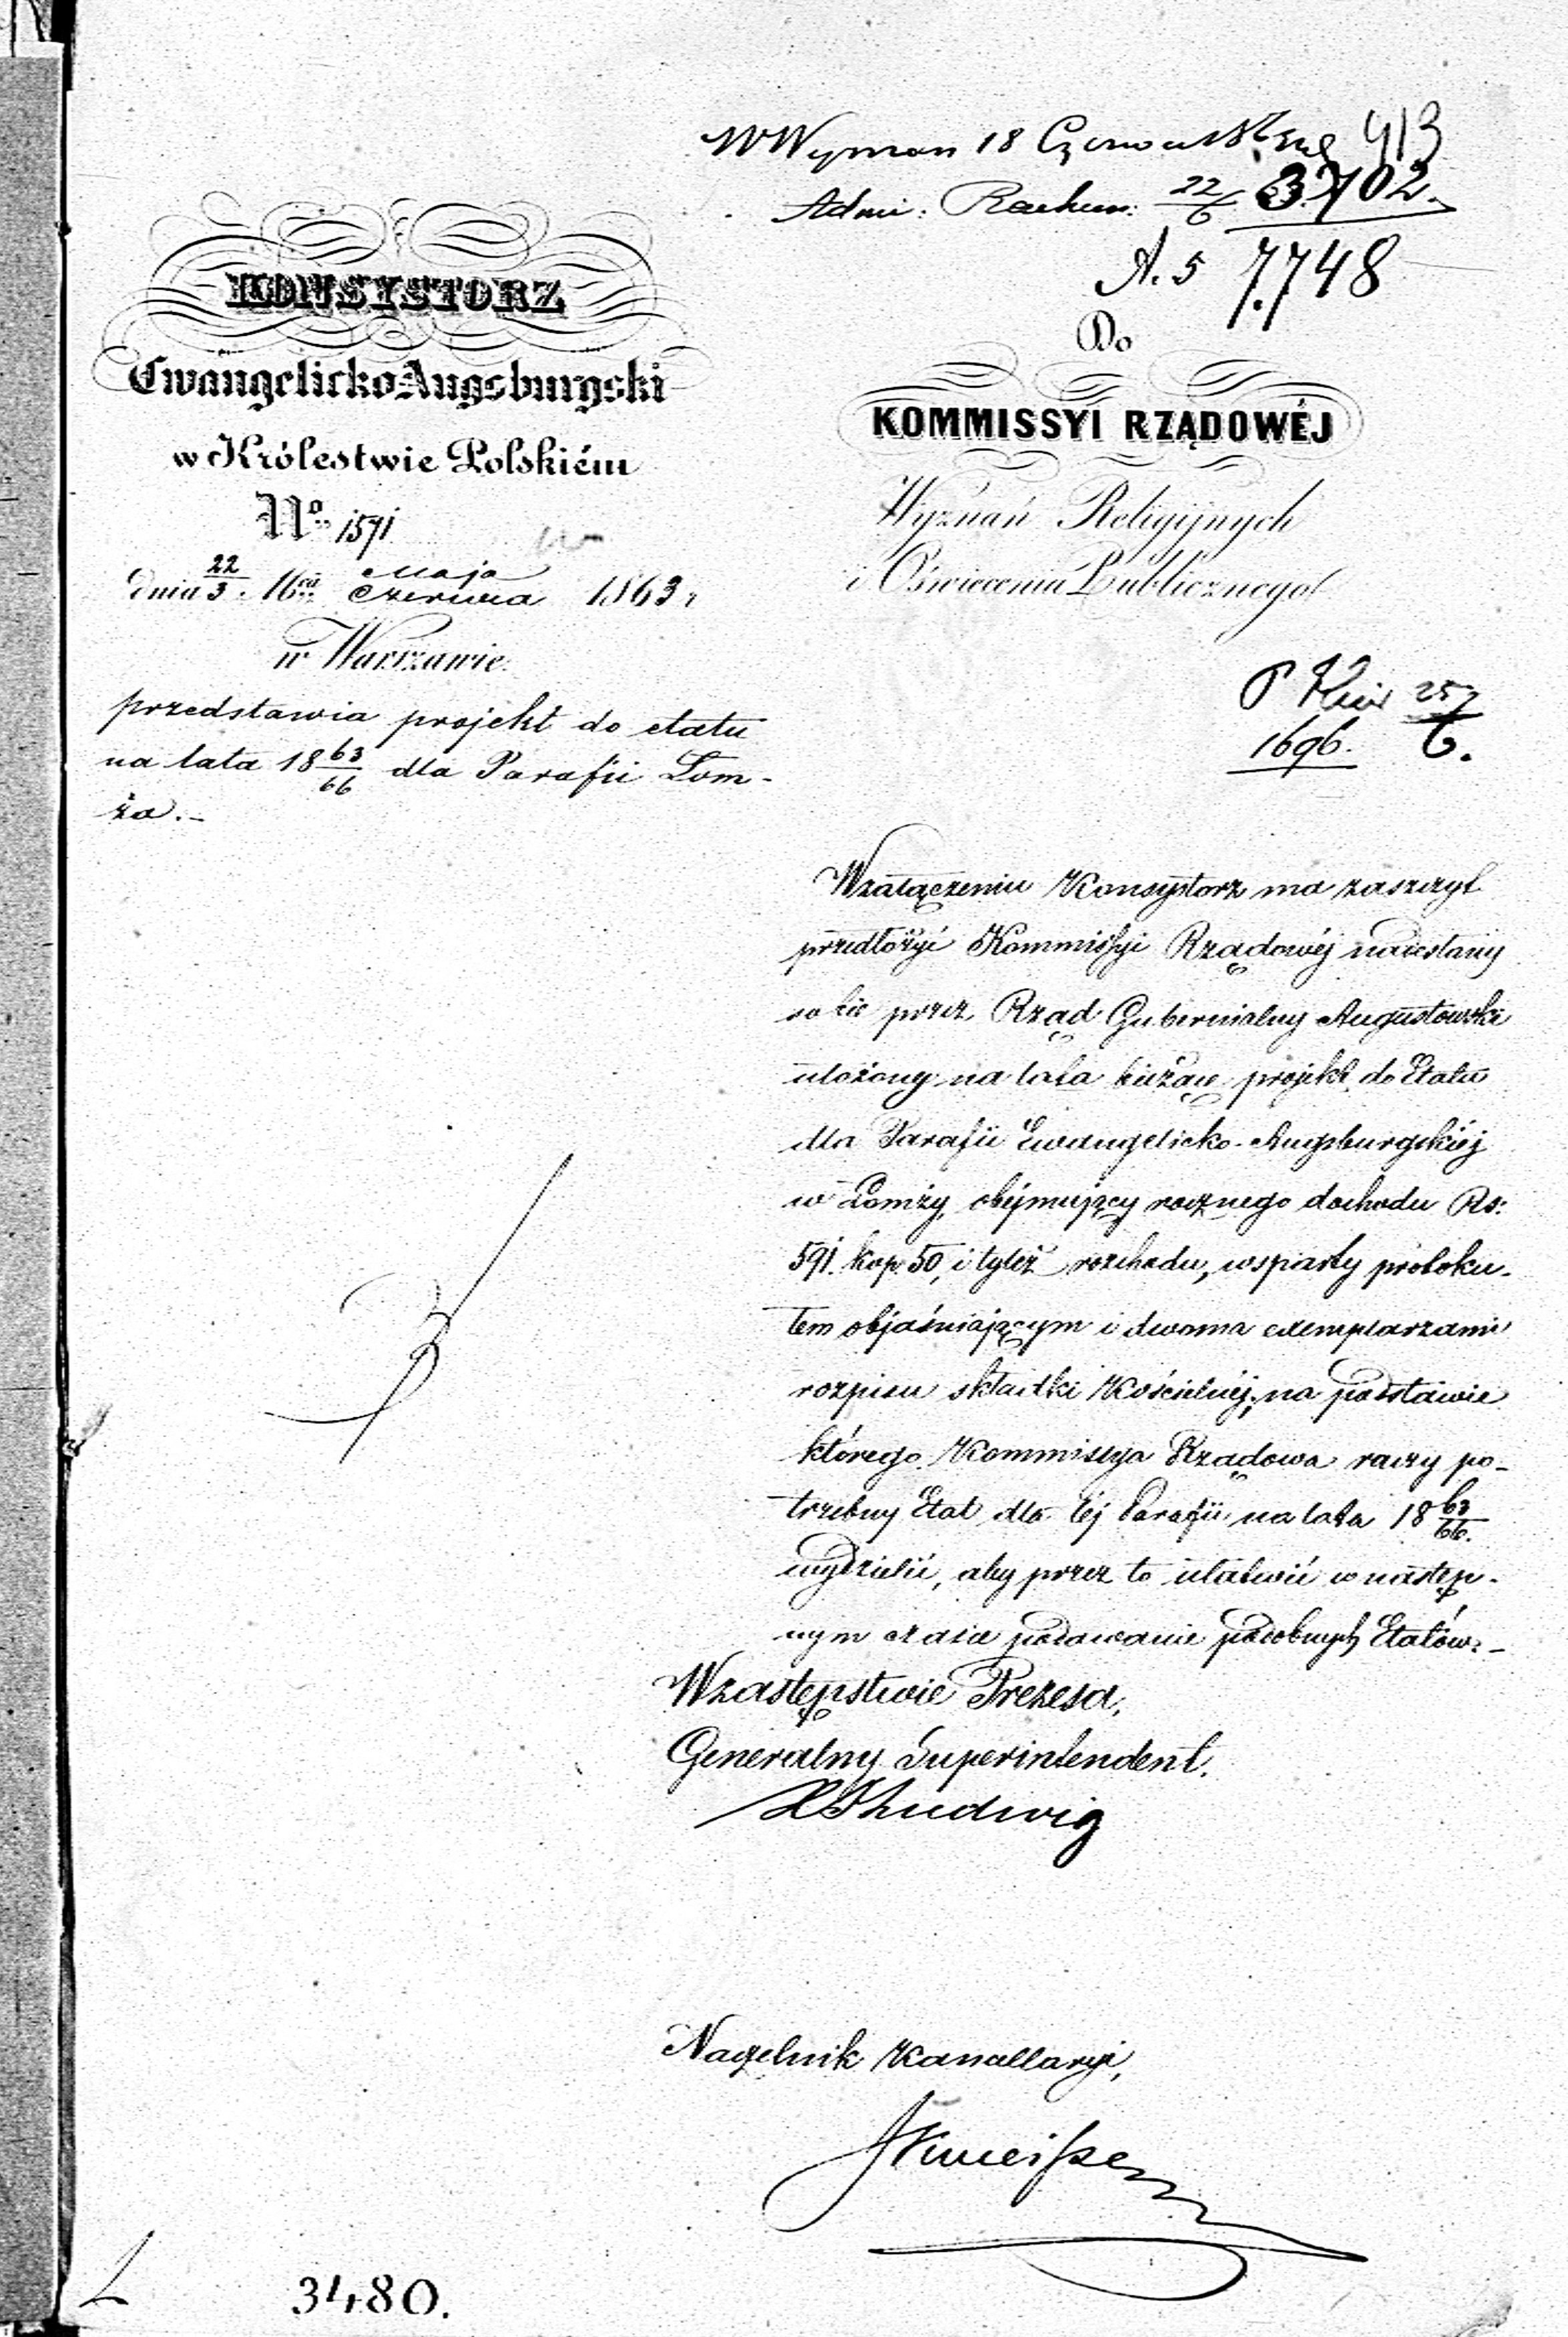 W Wyznań 18 Czerwca 413
Admi: Rachun: 22/6 3702.
A. 5 7.748
KONSYSTORZ
Ewangelicko-Augsburgski
w Królestwie Polskiém
No 1571
dnia 22/3 Maja/Czerwca 1863 r
w Warszawie.
przedstawia projekt do etatu
na lata 18 63/66 dla Parafii Łom-
ża.-
Do
KOMMISSYI RZĄDOWÉJ
Wyznań Religijnych
i Oświecenia Publicznego
25/6.
1696.
W załączeniu Konsystorz ma zaszczyt
przedłożyć Kommissyi Rządowéj nadesłany
sobie przez Rząd Gubernialny Augustowski
ułożony na lata bieżące projekt do Etatu
dla Parafii Ewangelicko-Augsburgskiéj
w Łomży, obejmujący rocznego dochodu Rs:
591. kop. 50, i tyleż rozchodu, wsparty protoku-
łem objaśniającym i dwoma exemplarzami
rozpisu składki Kościelnéj; na podstawie
którego Kommissya Rządowa raczy po-
trzebny Etat dla téj Parafii na lata 18 63/66.
wydzielić, aby przez to ułatwić w następ-
nym czasie podawanie podobnych Etatów.-
W zastępstwie Prezesa,
Generalny Superintendent.
Ludwig
Naczelnik Kancellaryi,
3480.